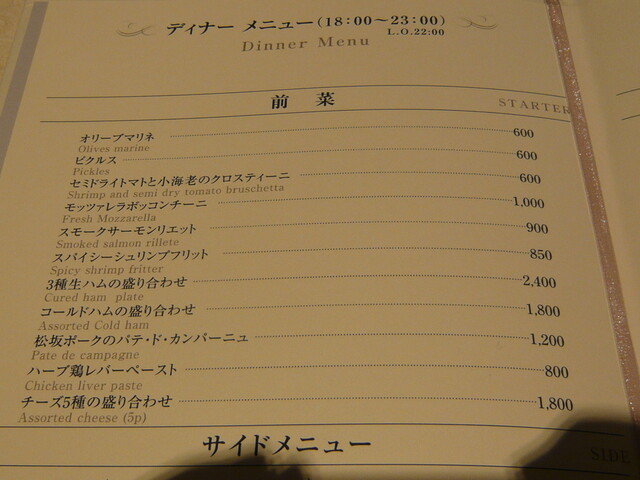 ディナー メニュー(18:00〜23:00)
L.O.22:00
Dinner Menu
前 菜 STARTER
オリーブマリネ 600
Olives marine
ピクルス 600
Pickles
セミドライトマトと小海老のクロスティーニ 600
Shrimp and semi dry tomato bruschetta
モッツァレラボッコンチーニ 1,000
Fresh Mozzarella
スモークサーモンリエット 900
Smoked salmon rillete
スパイシーシュリンプフリット 850
Spicy shrimp fritter
3種生ハムの盛り合わせ 2,400
Cured ham plate
コールドハムの盛り合わせ 1,800
Assorted Cold ham
松坂ポークのパテ・ド・カンパーニュ 1,200
Pate de campagne
ハーブ鶏レバーペースト 800
Chicken liver paste
チーズ5種の盛り合わせ 1,800
Assorted cheese (5p)
サイドメニュー SIDE